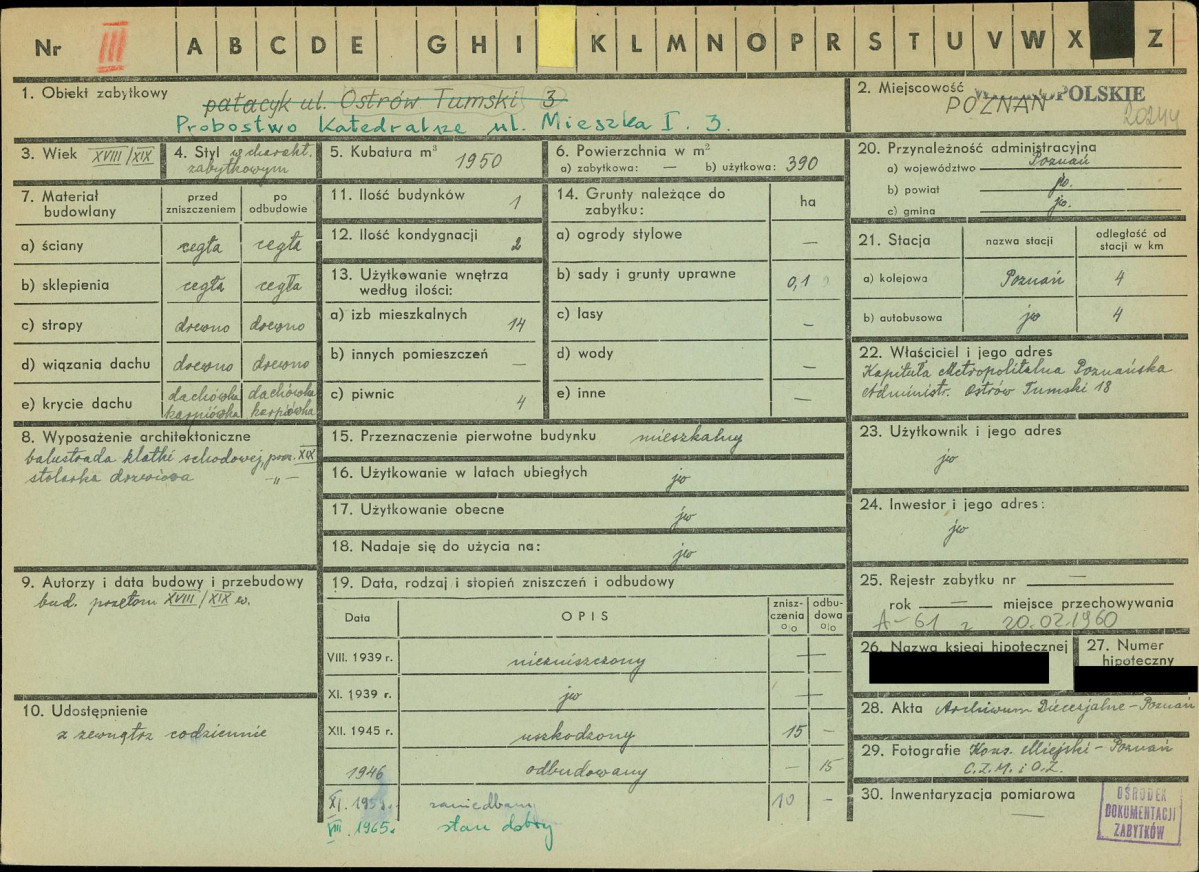 Nr III A B C D E G H I K L M N O P R S T U V W X Z
1. Obiekt zabytkowy
pałacyk ul. Ostrów Tumski 3
Probostwo Katedralne ul. Mieszka I. 3.
2. Miejscowość
POZNAŃ POLSKIE
3. Wiek XVIII/XIX
4. Styl w charakt.
zabytkowym
5. Kubatura m³ 1950
6. Powierzchnia w m²
a) zabytkowa: — b) użytkowa: 390
7. Materiał budowlany
przed zniszczeniem
po odbudowie
a) ściany cegła cegła
b) sklepienia cegła cegła
c) stropy drewno drewno
d) wiązania dachu drewno drewno
e) krycie dachu dachówka karpiówka dachówka karpiówka
8. Wyposażenie architektoniczne
balustrada klatki schodowej, pocz. XIX
stolarka drzwiowa —„—
9. Autorzy i data budowy i przebudowy
bud. przełom XVIII/XIX w.
10. Udostępnienie
z zewnątrz codziennie
11. Ilość budynków 1
12. Ilość kondygnacji 2
13. Użytkowanie wnętrza
według ilości:
a) izb mieszkalnych 14
b) innych pomieszczeń —
c) piwnic 4
14. Grunty należące do
zabytku: ha
a) ogrody stylowe —
b) sady i grunty uprawne 0,1
c) lasy —
d) wody —
e) inne —
15. Przeznaczenie pierwotne budynku mieszkalny
16. Użytkowanie w latach ubiegłych jw
17. Użytkowanie obecne jw
18. Nadaje się do użycia na: jw
19. Data, rodzaj i stopień zniszczeń i odbudowy
Data OPIS znisz-czenia % odbu-dowa %
VIII. 1939 r. niezniszczony —
XI. 1939 r. jw —
XII. 1945 r. uszkodzony 15 —
1946 odbudowany — 15
XI. 1959r. zaniedbany 10 —
VIII. 1965r. stan dobry
20. Przynależność administracyjna
a) województwo Poznań
b) powiat jw.
c) gmina jw.
21. Stacja nazwa stacji odległość od stacji w km
a) kolejowa Poznań 4
b) autobusowa jw 4
22. Właściciel i jego adres
Kapituła Metropolitalna Poznańska
Administr. Ostrów Tumski 18
23. Użytkownik i jego adres
jw
24. Inwestor i jego adres:
jw
25. Rejestr zabytku nr —
rok — miejsce przechowywania
A-61 z 20.02.1960
26. Nazwa księgi hipotecznej
27. Numer
hipoteczny
28. Akta Archiwum Diecezjalne - Poznań
29. Fotografie Kons. Miejski - Poznań
C.Z.M. i O.Z.
30. Inwentaryzacja pomiarowa
—
OŚRODEK
DOKUMENTACJI
ZABYTKÓW